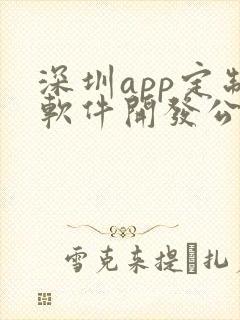 深圳app定制
軟件開發公
雪克来提·扎